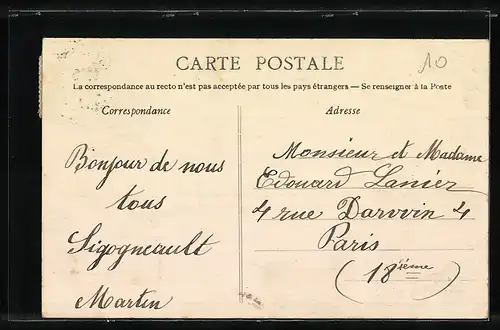 CARTE POSTALE
10
La correspondance au recto n'est pas acceptée par tous les pays étrangers — Se renseigner à la Poste
Correspondance
Adresse
Bonjour de nous
tous
Sigogneault
Martin
Monsieur et Madame
Edouard Lanier
4 rue Darwin 4
Paris
(18ième)